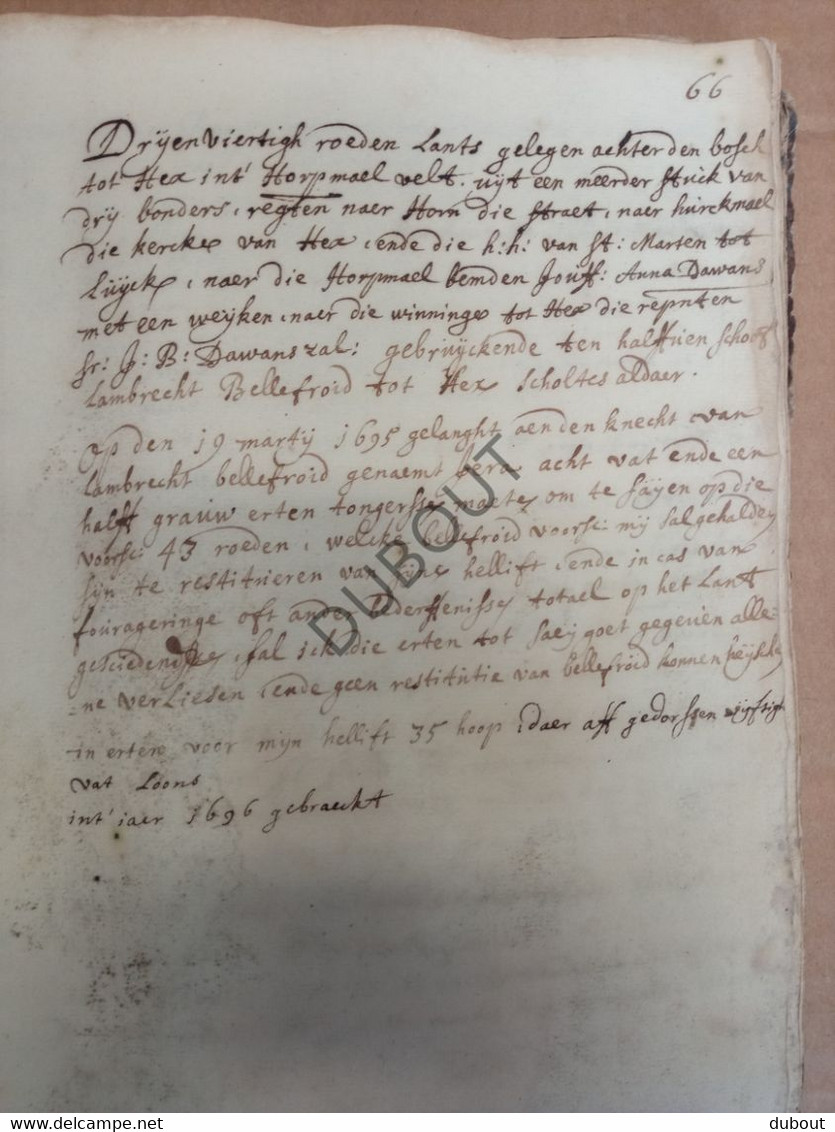 66
Drÿenviertigh roeden Lants gelegen achter den bosch
tot Hex int' Horpmael velt, uÿt een meerder stuck van
drÿ bonders, regten naer Horn die straet, naer hurckmael
die kercke van Hex, ende die h:h: van St: Marten tot
Luÿck, naer die Horpmael bemden Jouff: Anna Dawans
met een weÿken, naer die winninge tot Hex die repnten
Sr: J: B: Dawans zal: gebruÿckende ten halffuien schoof
Lambrecht Bellefroid tot Hex scholtes aldaer.
op den 19 martÿ 1695 gelanght aen den knecht van
Lambrecht bellefroid genaemt acht vat ende een
halff grauw erten tongersse maete, om te saÿen op die
voorsc: 43 roeden, welcke bellefroid voorsc: mÿ sal gehalden
sÿn te restitrieren van sÿne hellift, ende in cas van
fourageringe oft ander totael op het Lant
sal ick die erten tot saeÿ goet gegeven alle=
=ne verliesen, ende geen restitutie van bellefroid konnen heÿschen
in erten voor mÿn hellift 35 hoop, daer aff gedorssen vÿftigh
vat Loons
int' iaer 1696 gebraeckt
DUBOUT
delcampe.net
dubout